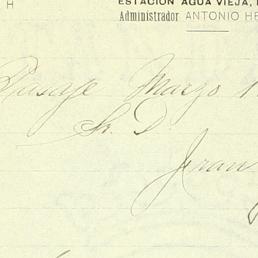 H
ESTACIÓN AGUA VIEJA,
Administrador ANTONIO HE
Pasaje Marzo 1
Sr. D.
Fran